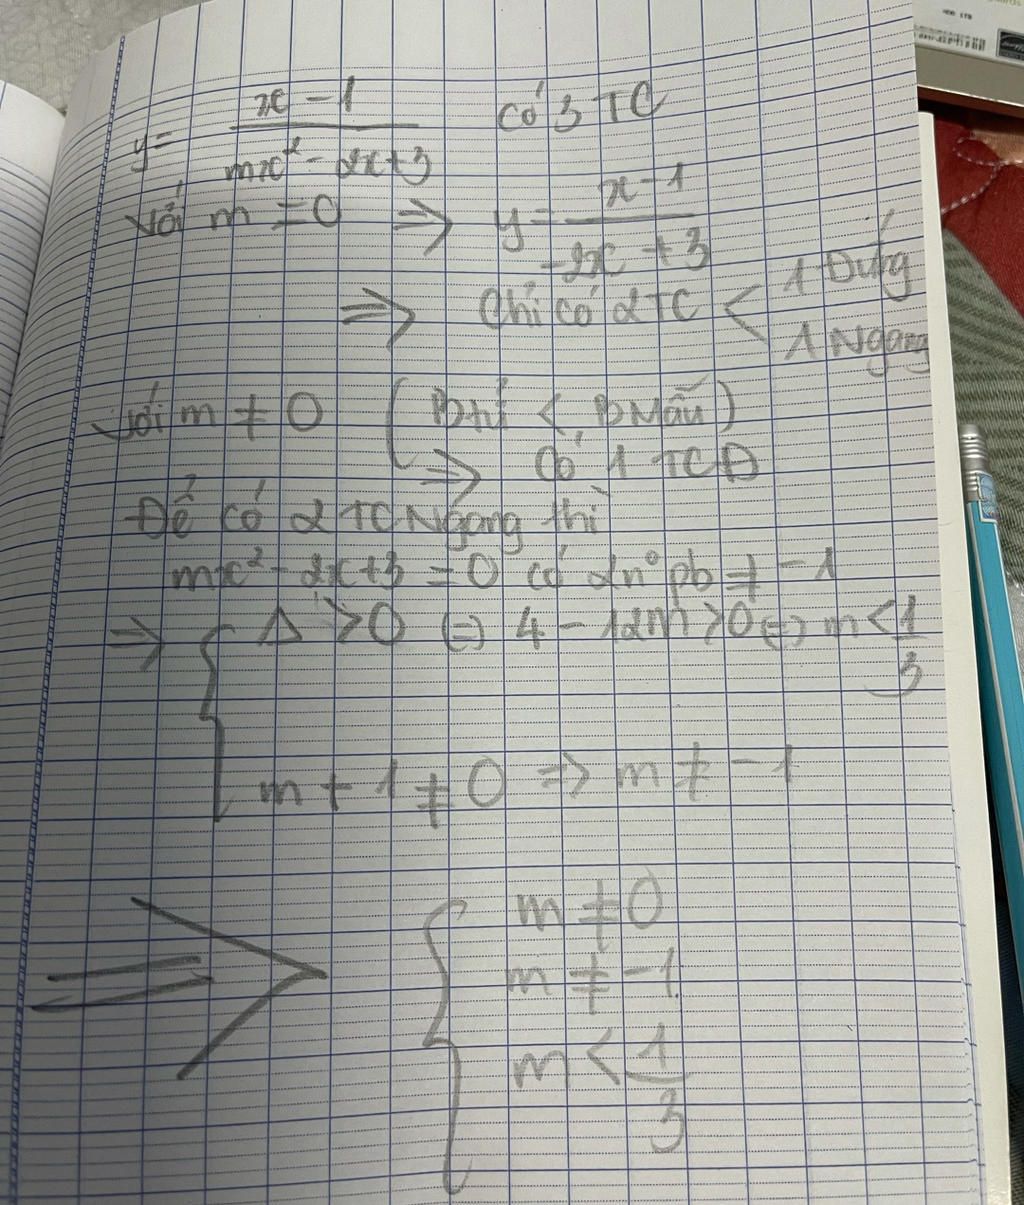 y = \frac{x - 1}{mx² - 2x + 3} có 3 TC
Với m = 0 => y = \frac{x - 1}{-2x + 3}
=> Chỉ có 2TC < 1 Đứng
1 Ngang
Với m ≠ 0 ( B tử < B Mẫu )
=> Có 1 TCĐ
Để có 2 TC Ngang thì
mx² - 2x + 3 = 0 có 2 n° pb ≠ -1
=> { Δ > 0 (=) 4 - 12m > 0 (=) m < \frac{1}{3}
m + 1 ≠ 0 => m ≠ -1
=> { m ≠ 0
m ≠ -1
m < \frac{1}{3}